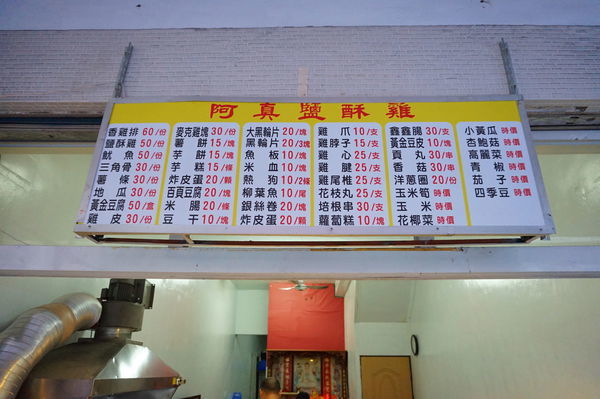 阿真鹽酥雞
香雞排 60/份
鹽酥雞 50/份
魷魚 50/份
三角骨 30/份
薯條 30/份
地瓜 30/份
黃金豆腐 50/盒
雞皮 30/份
麥克雞塊 30/份
薯餅 15/塊
芋餅 15/塊
芋粿 15/條
炸皮蛋 20/顆
百頁豆腐 20/塊
米腸 20/塊
豆干 10/塊
大黑輪片 20/塊
黑輪片 20/3塊
魚板 10/塊
米血 10/塊
熱狗 10/2條
柳葉魚 10/尾
銀絲卷 20/塊
炸皮蛋 20/顆
雞爪 10/支
雞脖子 15/支
雞心 25/支
雞腱 25/支
雞尾椎 25/支
花枝丸 25/支
培根串 30/支
蘿蔔糕 10/塊
鑫鑫腸 30/支
黃金豆包 10/塊
貢丸 30/串
香菇 30/串
洋蔥圈 20/份
玉米筍 時價
玉米 時價
花椰菜 時價
小黃瓜 時價
杏鮑菇 時價
高麗菜 時價
青椒 時價
茄子 時價
四季豆 時價